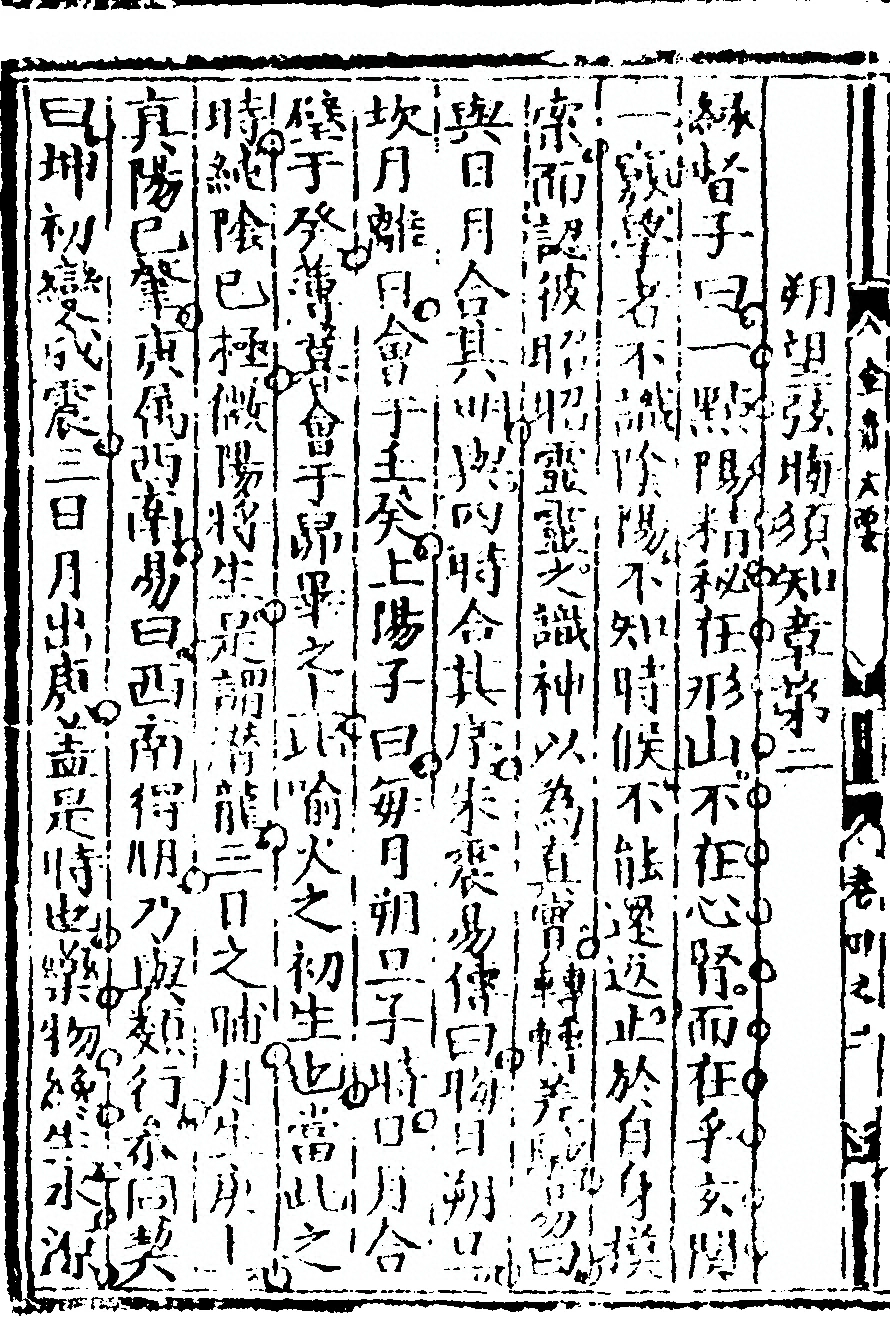 金丹大要
卷四之二
朔望弦晦須知章第二
緣督子曰一點陽精秘在形山不在心腎而在乎玄關
一竅學者不識陰陽不知時候不能還返止於自身摸
索而認彼昭昭靈靈之識神以為真實轉轉差馳易曰
與日月合其明與四時合其序朱震易傳曰晦日朔旦
坎月離日會于壬癸上陽子曰每月朔旦子時日月合
璧于癸薄暮會于昴畢之上此喻火之初生也當此之
時純陰已極微陽將生是謂潜龍三日之晡月生庚上
真陽已肇庚属西南易曰西南得朋乃與類行叅同契
曰坤初變成震三日月出庚盖是時也藥物纔生水源